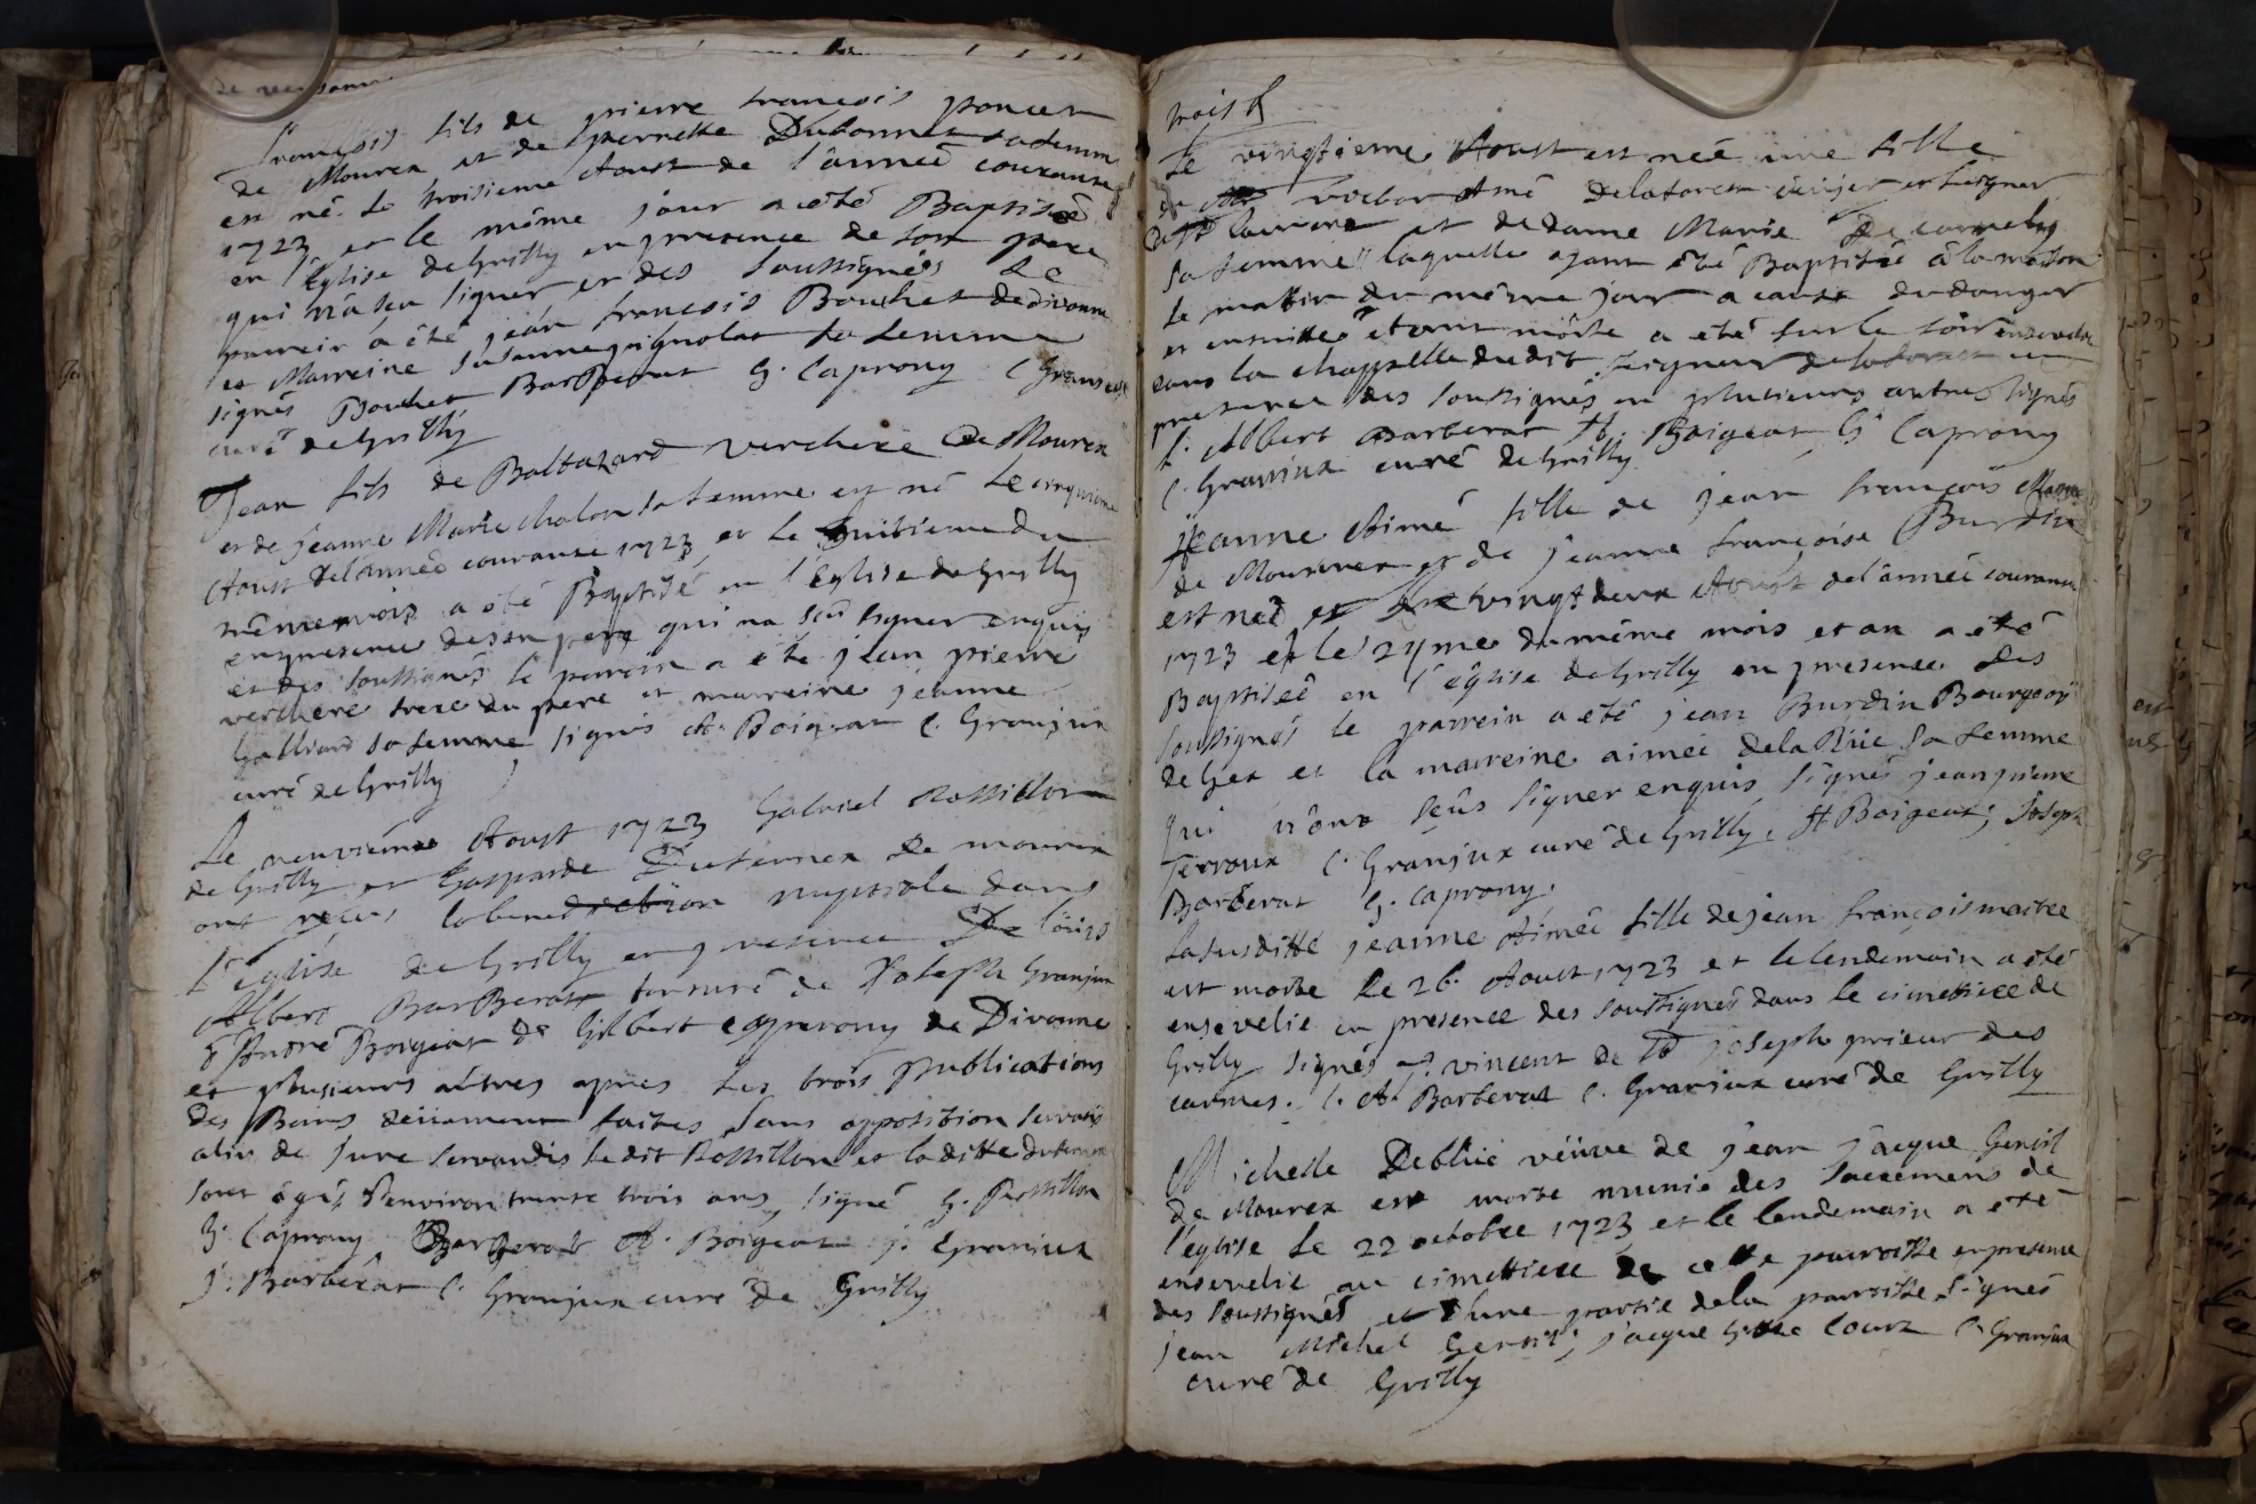 françois fils de pierre françois poncet
de Mourex et de pernette Dutonnet sa femme
est né le troisieme Aoust de l'année courante
1723 et le même jour a été Baptisé
en l'Eglise de Grilly en presence de son pere
qui n'a seu signer et des soussignés Le
parrein a été jean françois Bouchet de divonne
et Marreine susanne pignolat sa femme
signés Bouchet BarBerat G. Caprony C Granjux
curé de Grilly
Jean fils de Baltazard verchere de Mourex
et de jeanne Marie chalon sa femme est né Le cinquieme
Aoust de l'année courante 1723 et le huitieme du
même mois a été Baptisé en l'Eglise de Grilly
en presence de son pere qui na sçû signer enquis
et des soussignés le parrein a été jean pierre
verchere frere du pere et marreine jeanne
Galliard sa femme signés A. Boigeat C. Granjux
curé de Grilly
Le neuvième Aoust 1723 Gabriel Rossillon
de Grilly et Gasparde Duternex de mourex
ont reçus la benediction nuptiale dans
L'église de Grilly en presence De loüis
Albert BarBerat tonsuré de Joseph Granjux
d'André Boigeat de Gilbert caprony de Divonne
et plusieurs autres apres les trois publications
des Bans deüement faites sans opposition servatis
aliis de jure servandis le dit Rossillon et la ditte duternex
sont agés d'environ trente trois ans, signé G. Rossillon
G. Caprony, Barberat A. Boigeat j. Granjux
J. Barbérat C. Granjux curé de Grilly
trois
Le vingtieme Aoust est née une fille
de victor Amé delaforest écüjer et seigneur
et de dame Marie De
sa femme laquelle ayant été Baptisée à la maison
le mattin du même jour a cause du danger
et ensuitte étant morte a été sur le soir ensevelie
dans la chappelle dudit seigneur delaforest en
presence des soussignés et plusieurs autres signés
L. Albert Barberat A. Boigeat G. Caprony
C. Granjux curé de Grilly
jeanne Aimé fille de jean françois
de Mourex et de jeanne françoise Burdin
est neé le vingt deux Aoust de l'année courante
1723 et le 24me du même mois et an a été
Baptiseé en l'église de Grilly en presence des
soussignés le parrein a été jean Burdin Bourgeois
de Gex et la marreine aimée dela Rüe sa femme
qui n'ont seûs signer enquis signés jean pierre
Terroux C. Granjux curé de Grilly, A Boigeat, Joseph
Barberat G. Caprony.
la susditte jeanne Aimée fille de jean françois maitre
est morte le 26. Aoust 1723 et le lendemain a été
ensevelie en presence des soussignés dans le cimettiere de
Grilly signés vincent de St joseph prieur des
carmes. L. A. Barberat C. Granjux curé de Grilly
Michelle veüve de jean jacque Genoit
de Mourex est morte munie des sacremens de
l'église le 22 octobre 1723 et le lendemain a été
ensevelie au cimettiere de cette parroisse en presence
des soussignés et d'une partie dela parroisse signés
jean Michel Genoit, jacque C. Granjux
curé de Grilly